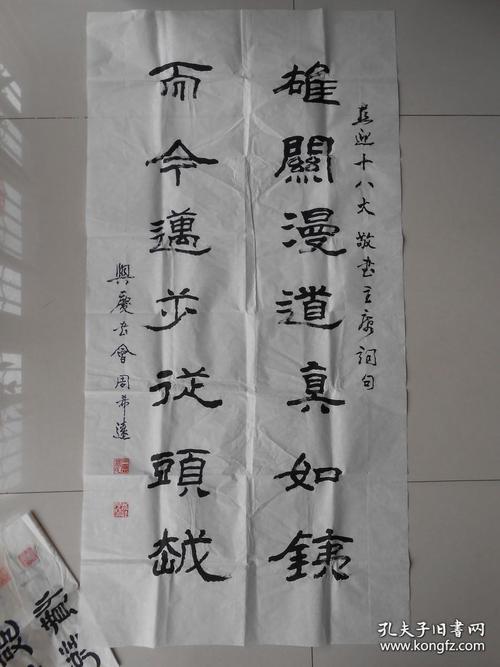 喜迎十八大 敬书主席词句
雄關漫道真如鐵
而今邁步從頭越
興慶书會周希遠
孔夫子旧书网
www.kongfz.com